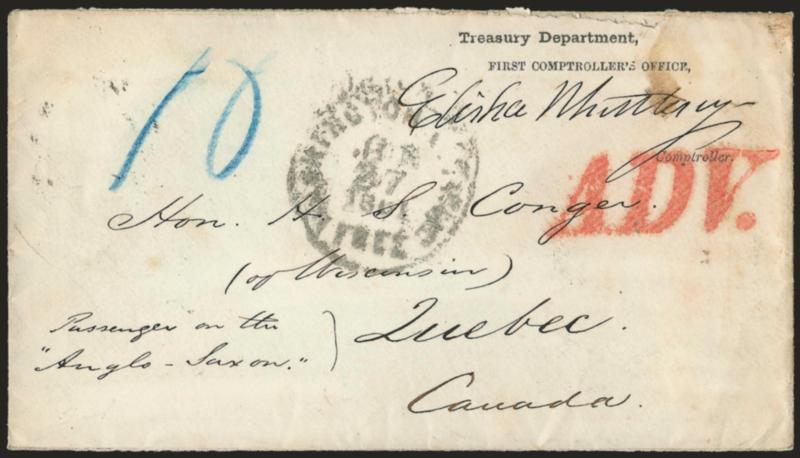 Treasury Department,
FIRST COMPTROLLER'S OFFICE,
Elisha Whittlesey
Comptroller.
10
WASHINGTON
27
FREE
ADV.
Hon. H. S. Conger.
(of Wisconsin)
Passenger on the
"Anglo-Saxon."
Quebec.
Canada.